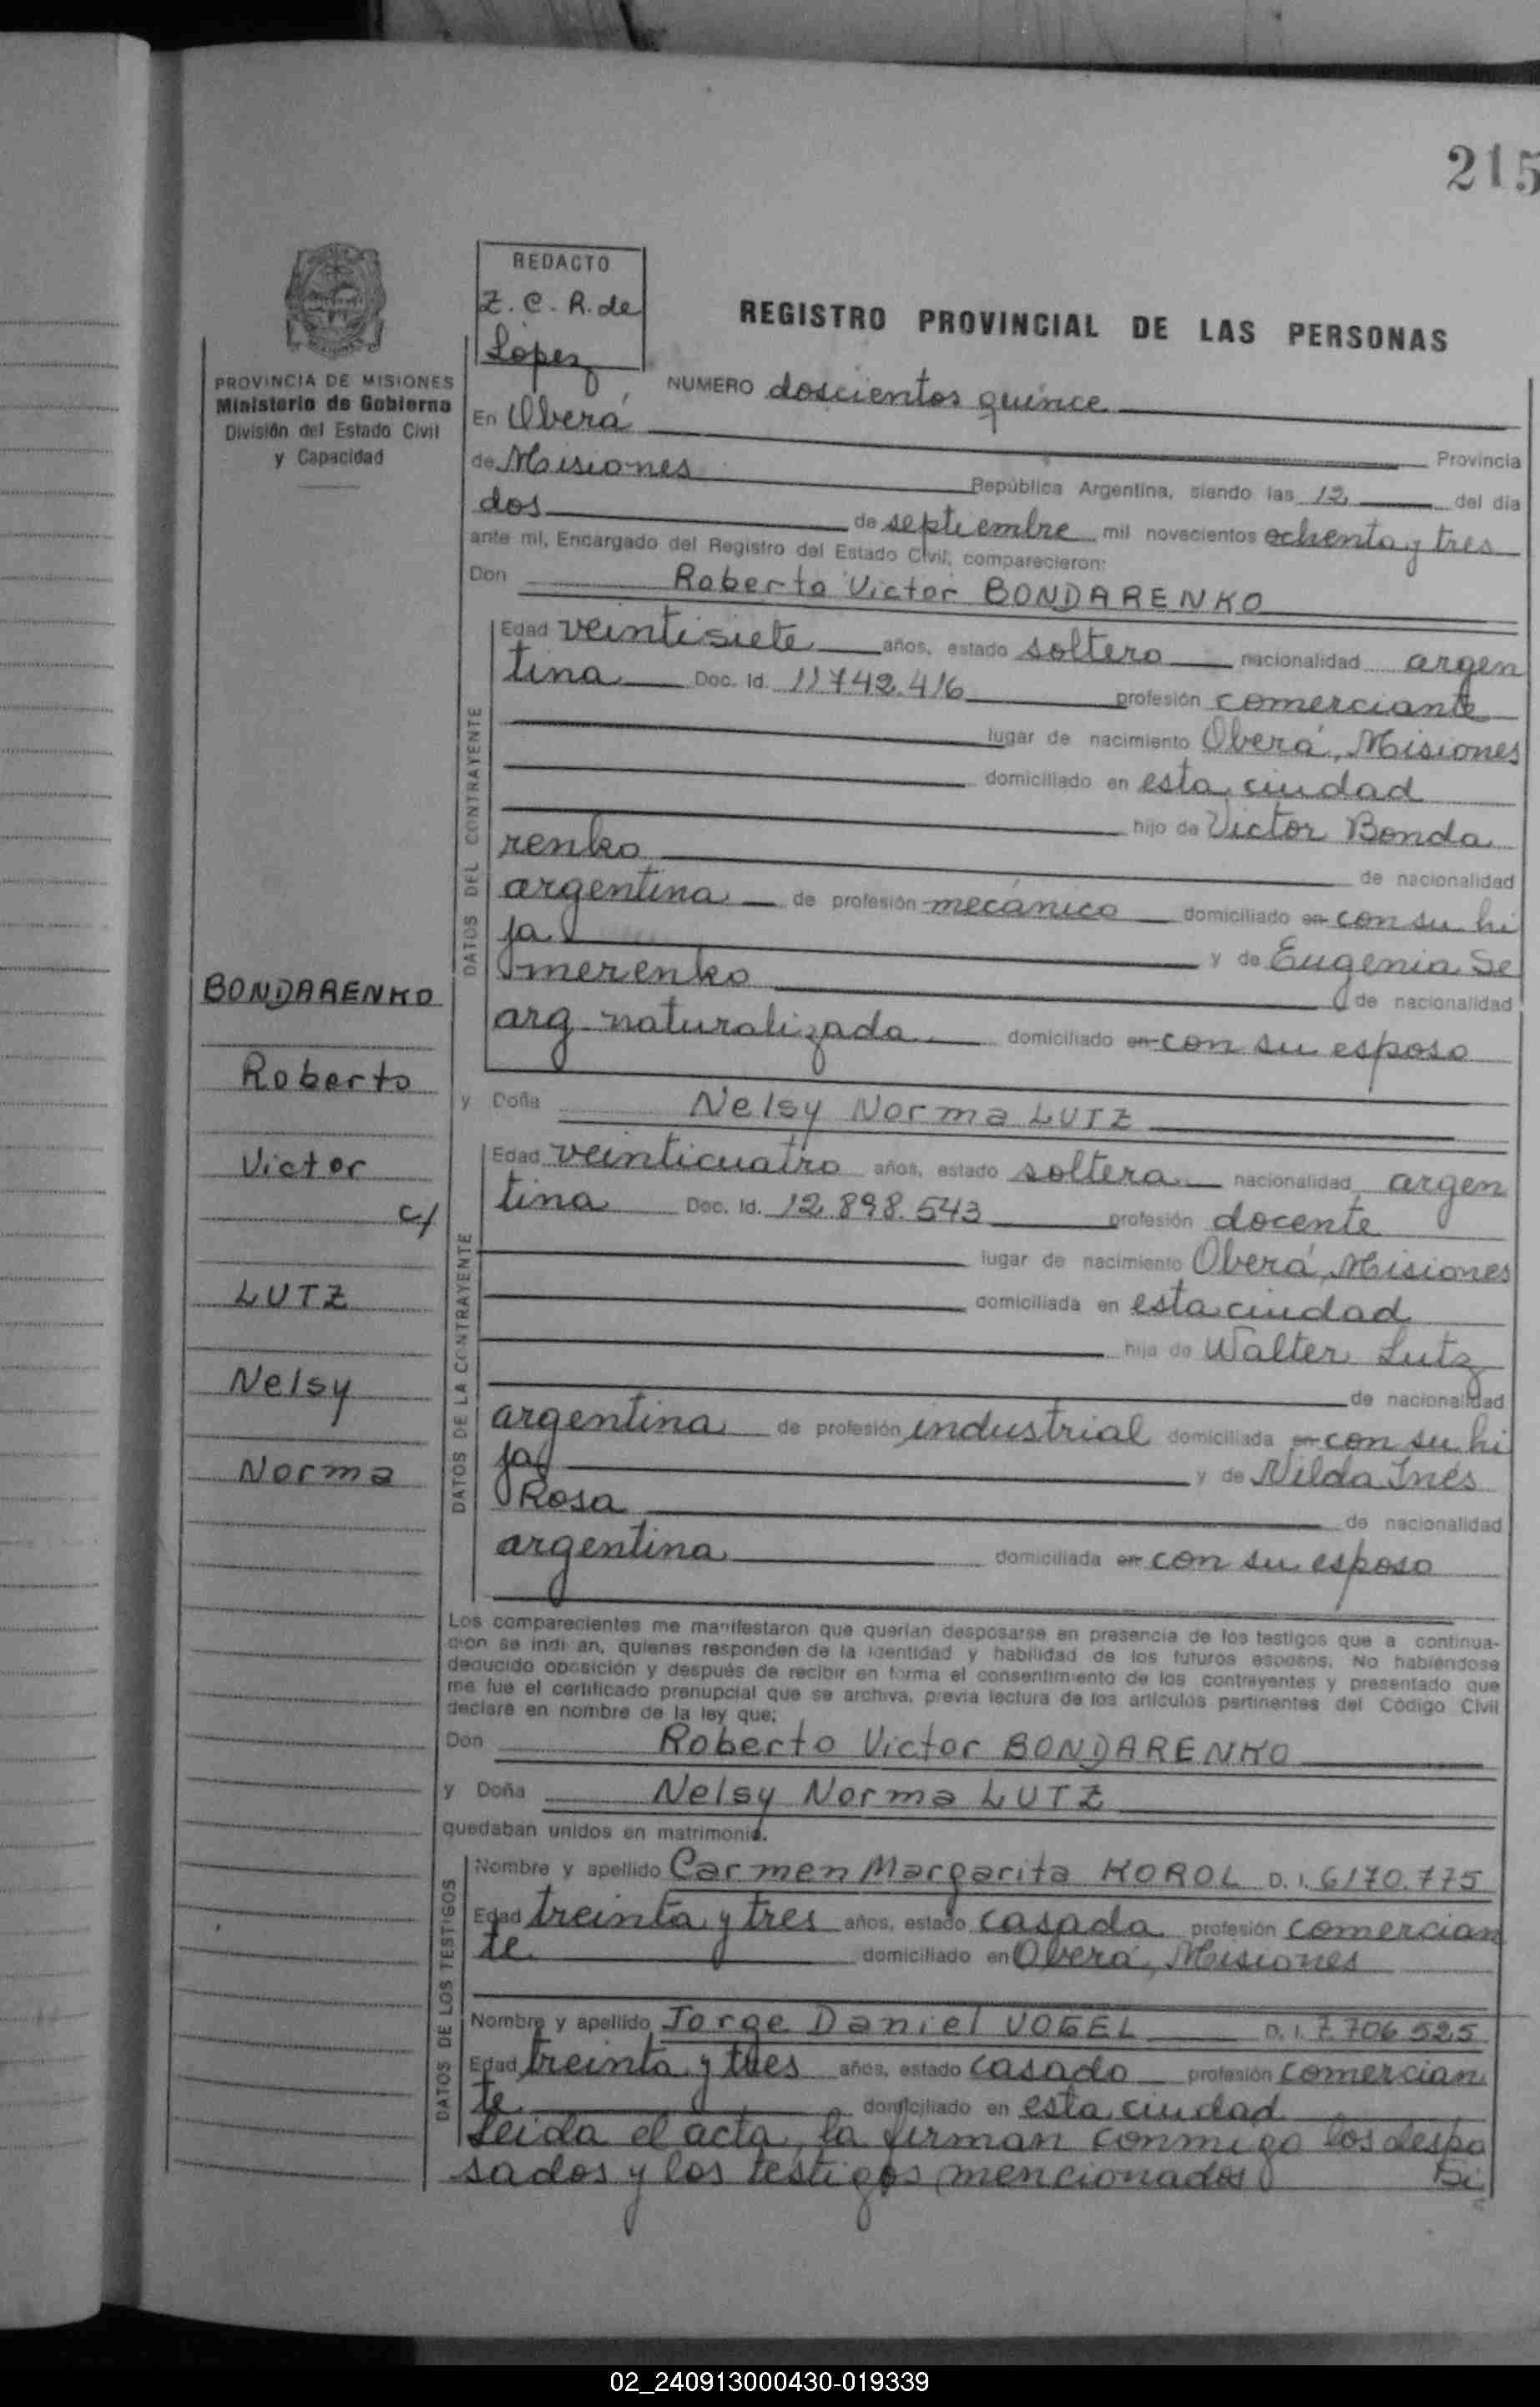 215
REDACTO
Z. C. R. de
López
REGISTRO PROVINCIAL DE LAS PERSONAS
PROVINCIA DE MISIONES
Ministerio de Gobierno
División del Estado Civil
y Capacidad
NUMERO doscientos quince
En Oberá
Provincia
de Misiones República Argentina, siendo las 12 del día
dos de septiembre mil novecientos ochenta y tres
ante mí, Encargado del Registro del Estado Civil, comparecieron:
Don Roberto Victor BONDARENKO
DATOS DEL CONTRAYENTE
Edad veintisiete años, estado soltero nacionalidad argen
tina Doc. Id. 11742.416 profesión comerciante
lugar de nacimiento Oberá, Misiones
domiciliado en esta ciudad
hijo de Victor Bonda
renko de nacionalidad
argentina de profesión mecánico domiciliado en con su hi
ja y de Eugenia Se
merenko de nacionalidad
arg naturalizada domiciliado en con su esposo
BONDARENKO
Roberto
Victor
c/
LUTZ
Nelsy
Norma
y Doña Nelsy Norma LUTZ
DATOS DE LA CONTRAYENTE
Edad veinticuatro años, estado soltera nacionalidad argen
tina Doc. Id. 12.898.543 profesión docente
lugar de nacimiento Oberá, Misiones
domiciliada en esta ciudad
hija de Walter Lutz
de nacionalidad
argentina de profesión industrial domiciliada en con su hi
ja y de Nilda Inés
Rosa de nacionalidad
argentina domiciliada en con su esposo
Los comparecientes me manifestaron que querían desposarse en presencia de los testigos que a continua-
ción se indi an, quienes responden de la identidad y habilidad de los futuros esposos. No habiéndose
deducido oposición y después de recibir en forma el consentimiento de los contrayentes y presentado que
me fue el certificado prenupcial que se archiva, previa lectura de los artículos pertinentes del Código Civil
declaré en nombre de la ley que;
Don Roberto Victor BONDARENKO
y Doña Nelsy Norma LUTZ
quedaban unidos en matrimonio.
DATOS DE LOS TESTIGOS
Nombre y apellido Carmen Margarita KOROL D. I. 6170.775
Edad treinta y tres años, estado casada profesión comercian
te domiciliado en Oberá, Misiones
Nombre y apellido Jorge Daniel VOGEL D. I. 7.706 525
Edad treinta y tres años, estado casado profesión comercian
te domiciliado en esta ciudad
Leida el acta, la firman conmigo los despo
sados y los testigos mencionados
02_240913000430-019339